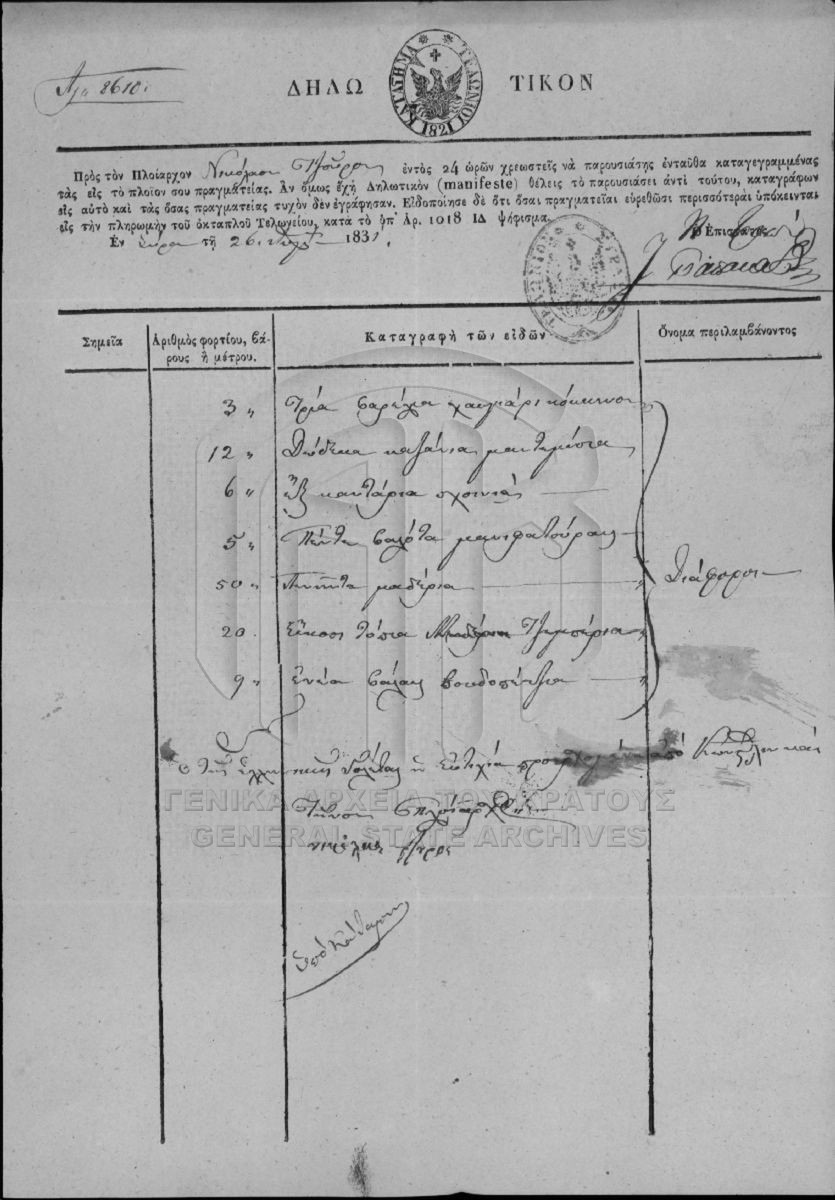 Αρ. 8610.
ΔΗΛΩ ΤΙΚΟΝ
ΚΑΤΑΣΤΗΜΑ ΤΕΛΩΝΙΟΥ 1821
Πρὸς τὸν Πλοίαρχον Νικόλαον ἐντὸς 24 ὡρῶν χρεωστεῖς νὰ παρουσιάσῃς ἐνταῦθα καταγεγραμμένας
τὰς εἰς τὸ πλοῖον σου πραγματείας. Ἂν ὅμως ἔχῃ Δηλωτικὸν (manifeste) θέλεις τὸ παρουσιάσει ἀντὶ τούτου, καταγράφων
εἰς αὐτὸ καὶ τὰς ὅσας πραγματείας τυχὸν δὲν ἐγράφησαν. Εἰδοποίησε δὲ ὅτι ὅσαι πραγματεῖαι εὑρεθῶσι περισσότεραι ὑπόκεινται
εἰς τὴν πληρωμὴν τοῦ ὀκταπλοῦ Τελωνείου, κατὰ τὸ ὑπ' Ἀρ. 1018 ΙΔ ψήφισμα.
Ἐν Σύρα τῇ 26 1831.
Ὁ Ἐπιστάτης
Σημεῖα
Ἀριθμὸς φορτίου, βά-
ρους ἢ μέτρου.
Καταγραφὴ τῶν εἰδῶν
Ὄνομα περιλαμβάνοντος
3 " Τρία βαρέλια χαυγιάρι κόκκινον
12 " Δώδεκα καζάνια μαντεμένια
6 " Ἓξ καντάρια σχοινιὰ
5 " Πέντε βαλότα μανιφατούραις
50 " Πενῆντα μαδέρια
Διάφοροι
20 . Εἴκοσι τόπια Τζεμπέρια
9 " Ἐννέα βουδοπέτζια
ὁ τῆς Ἑλληνικῆς Γολέτας ἡ Εὐτυχία
ΓΕΝΙΚΑ ΑΡΧΕΙΑ ΤΟΥ ΚΡΑΤΟΥΣ
GENERAL STATE ARCHIVES